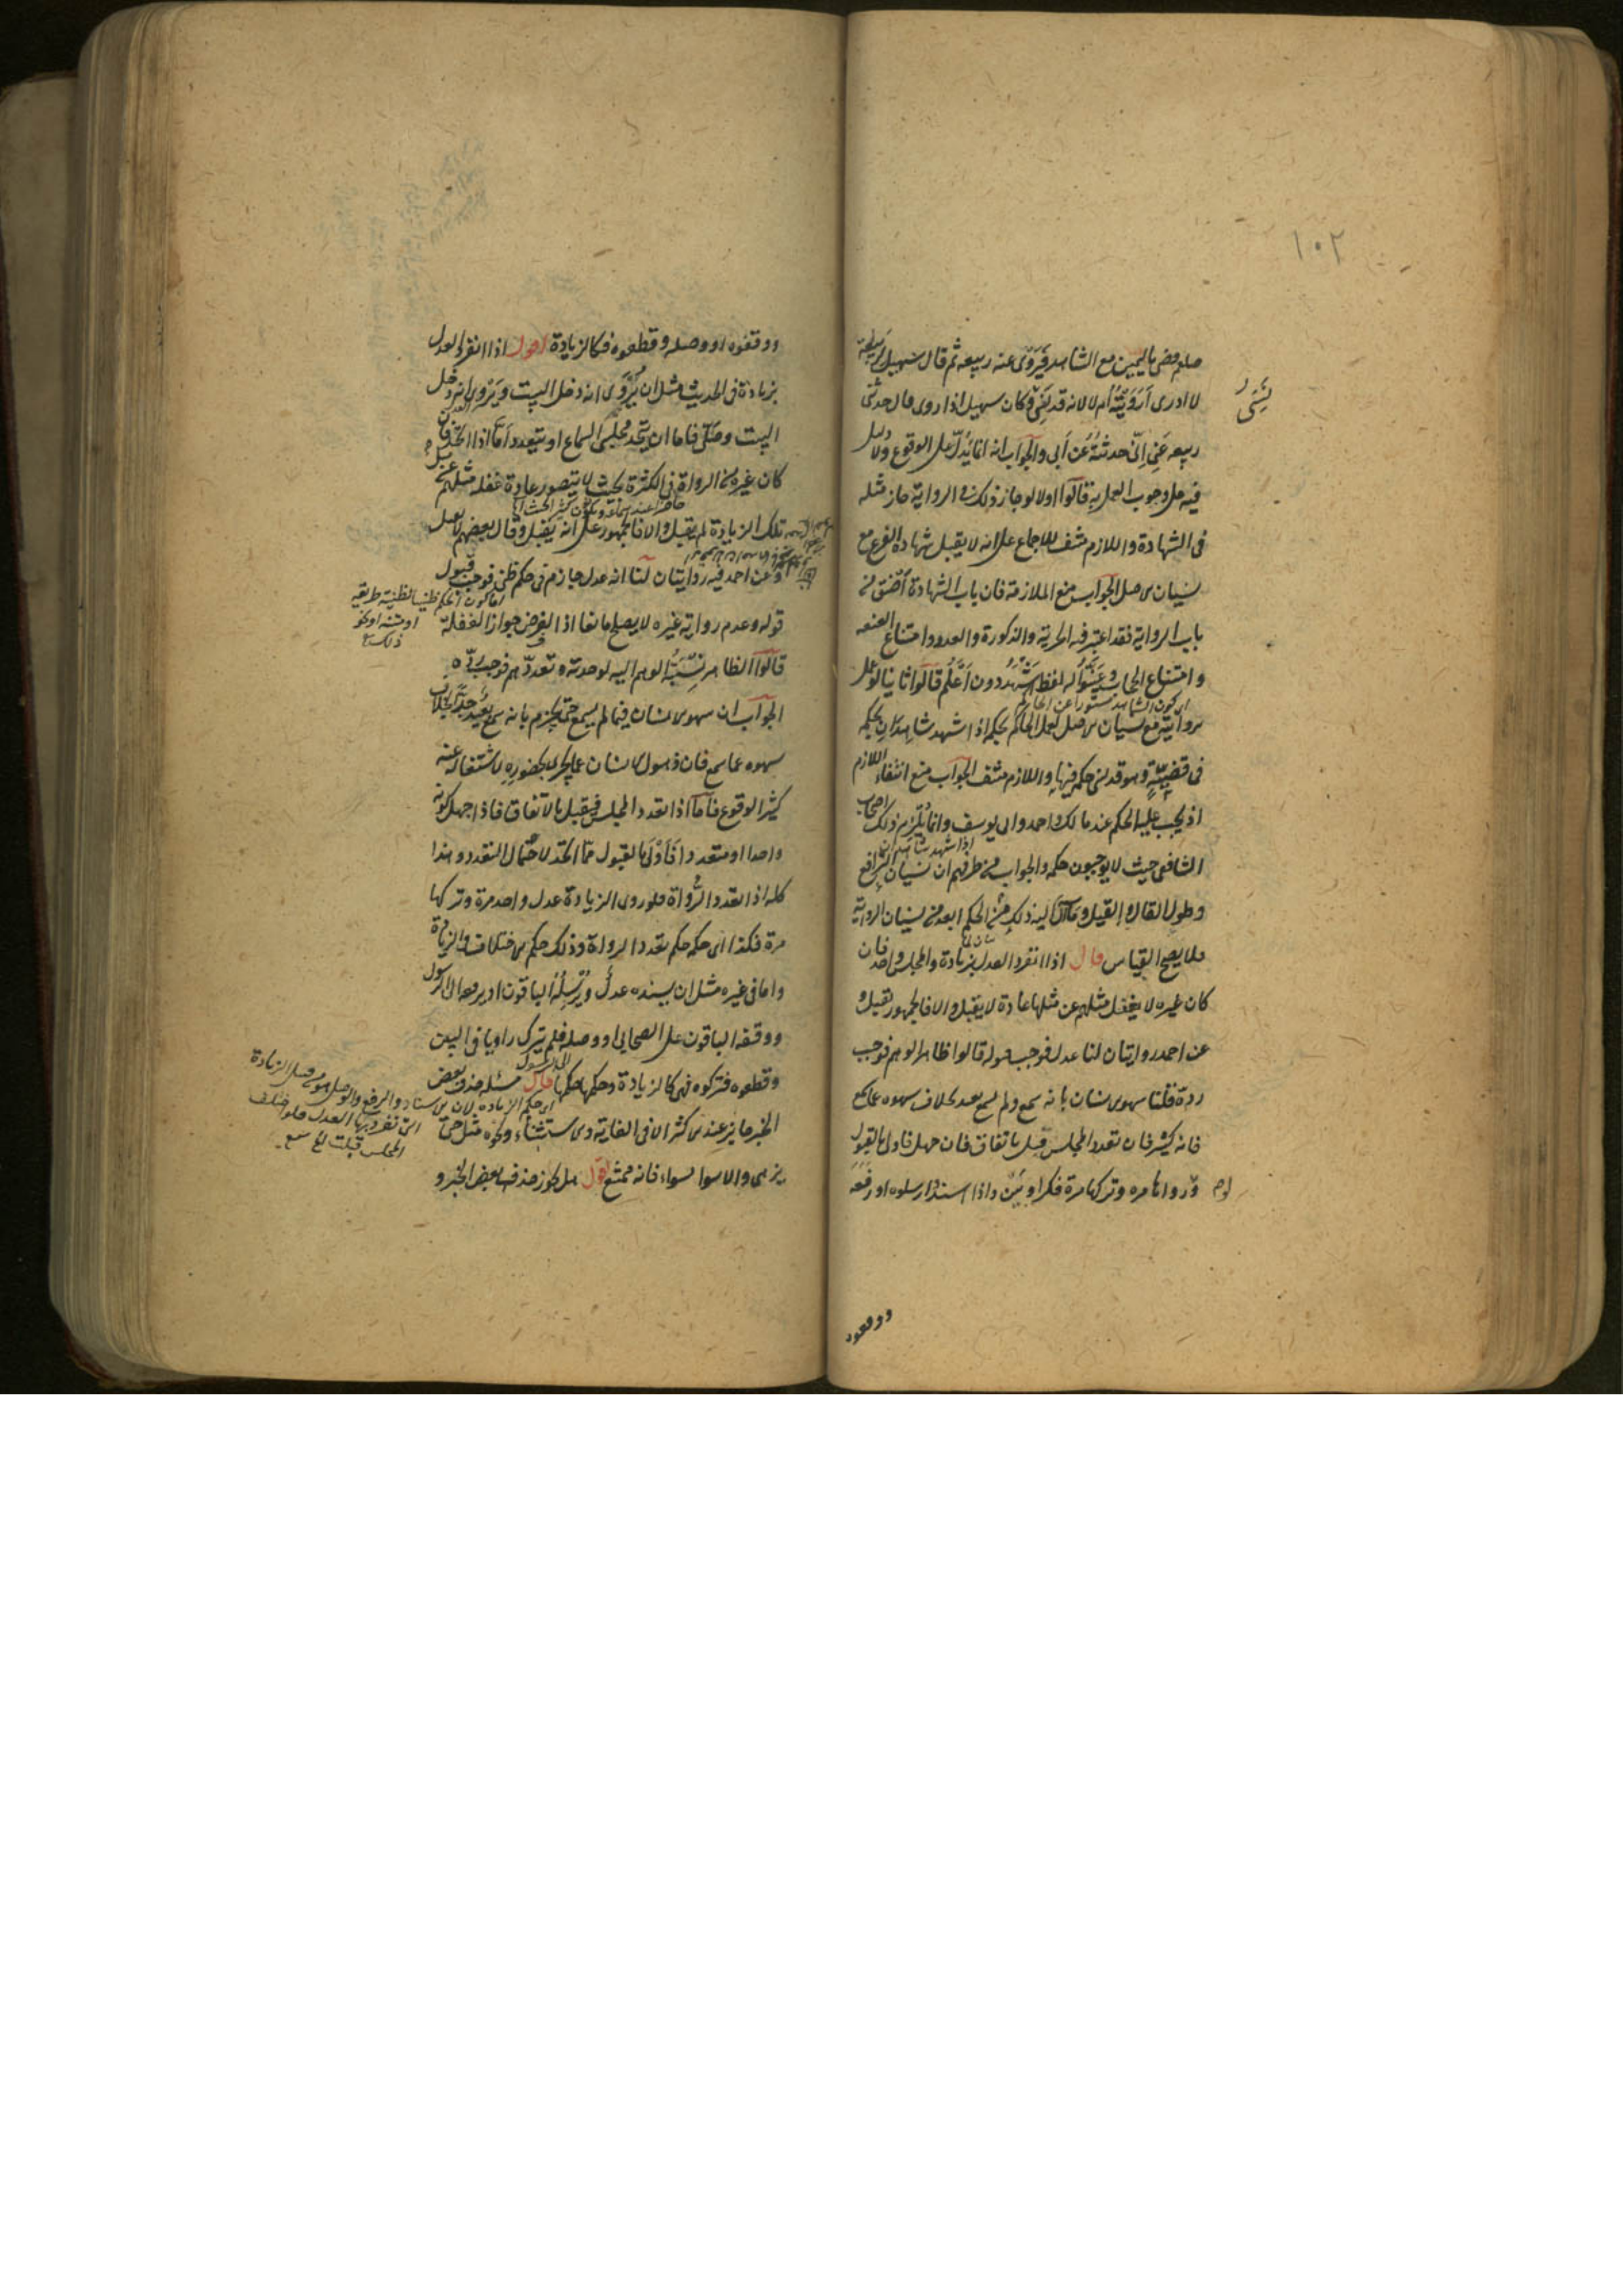 ١٠٢
صلعم قضى باليمين مع الشاهد فيروى عنه ربيعه ثم قال سهيل لربيعة
لا ادرى أرويته أم لا لانه قد نسى وكان سهيل اذا روى قال حدثنى
ربيعه عنى انى حدثته عن أبى والجواب انه انما يدل على الوقوع ولا دليل
فيه على وجوب العمل به قالوا اولا لو جاز ذلك فى الرواية جاز مثله
فى الشهادة واللازم منتف للاجماع على انه لا يقبل شهادة الفرع مع
نسيان الاصل الجواب منع الملازمة فان باب الشهادة أضيق من
باب الرواية فقد اعتبر فيه الحرية والذكورة والعدد وامتناع العنعنه
وامتناع الحجاب وعينوا له لفظ اشهد دون أعلم قالوا ثانيا لو عمل
بروايته مع نسيان الاصل لعمل الحاكم بحكمه اذا شهد شاهدان بحكمه
فى قضية وهو قد نسى حكمه فيها واللازم منتف الجواب منع انتفاء اللازم
اذ يجب عليه الحكم عند مالك واحمد وابى يوسف وانما يلتزم ذلك اصحاب
الشافعى حيث لا يوجبون حكمه والجواب من طرفهم ان نسيان الترافع
وطول القال والقيل وما اليه ذلك من الحكم ابعد من نسيان الرواية
فلا يصح القياس قال اذا انفرد العدل بزيادة والمجلس واحد فان
كان غيره لا يغفل مثلهم عن مثلها عادة لا يقبل والا فالجمهور تقبل و
عن احمد روايتان لنا عدل فوجب قوله قالوا ظاهر الوهم فوجب
رده قلنا سهو الانسان بانه سمع ولم يسمع بعيد بخلاف سهوه عما سمع
فانه كثير فان تعدد المجلس قبل باتفاق فان جهل فاولى بالقبول
ولو رواها مره وتركها مرة فكراويين واذا اسند وارسلوه او رفعه
ووقفوه
ووقفوه او وصله وقطعوه فكالزيادة اقول اذا انفرد العدل
بزيادة فى الحديث مثل ان يروى انه دخل البيت ويروى انه دخل
البيت وصلى فاما ان يتحد مجلس السماع او يتعدد أما اذا اتحد فان
كان غيره من الرواة فى الكثرة بحيث لا يتصور عادة غفلة مثلهم عن مثل
تلك الزيادة لم يقبل والا فالجمهور على انه يقبل وقال بعضهم لا يقبل
وعن احمد فيه روايتان لنا انه عدل جازم فى حكم ظنى فوجب قبول
قوله وعدم رواية غيره لا يصلح مانعا اذ الفرض جواز الغفلة
قالوا الظاهر نسبة الوهم اليه لوحدته وتعددهم فوجب رده
الجواب ان سهو الانسان فيما لم يسمع حتى يجزم بانه سمع بعيد جدا بخلاف
سهوه عما سمع فان ذهول الانسان عما يجرى بحضوره لاشتغاله عنه
كثير الوقوع فأما اذا تعدد المجلس فيقبل بالاتفاق فاذا جهل كونه
واحدا او متعددا فأولى بالقبول مما اتحد لاحتمال التعدد وهذا
كله اذا تعدد الرواة فلو روى الزيادة عدل واحد مرة وتركها
مرة فكذا اى حكمه حكم تعدد الرواة وذلك حكم الاختلاف بالزيادة
واما فى غيره مثل ان يسنده عدل ويرسله الباقون او يرفعه الى الرسول
ووقفه الباقون على الصحابى او وصله فلم يترك راويا فى البين
وقطعوه فتركوه فهى كالزيادة وحكمها حكمها قال مسئلة حذف بعض
الخبر جايز عند الاكثر الا فى الغاية والاستثناء ونحوه مثل حتى
يزهى والا سواء بسواء فانه ممتنع اقول هل يجوز حذف بعض الخبر و